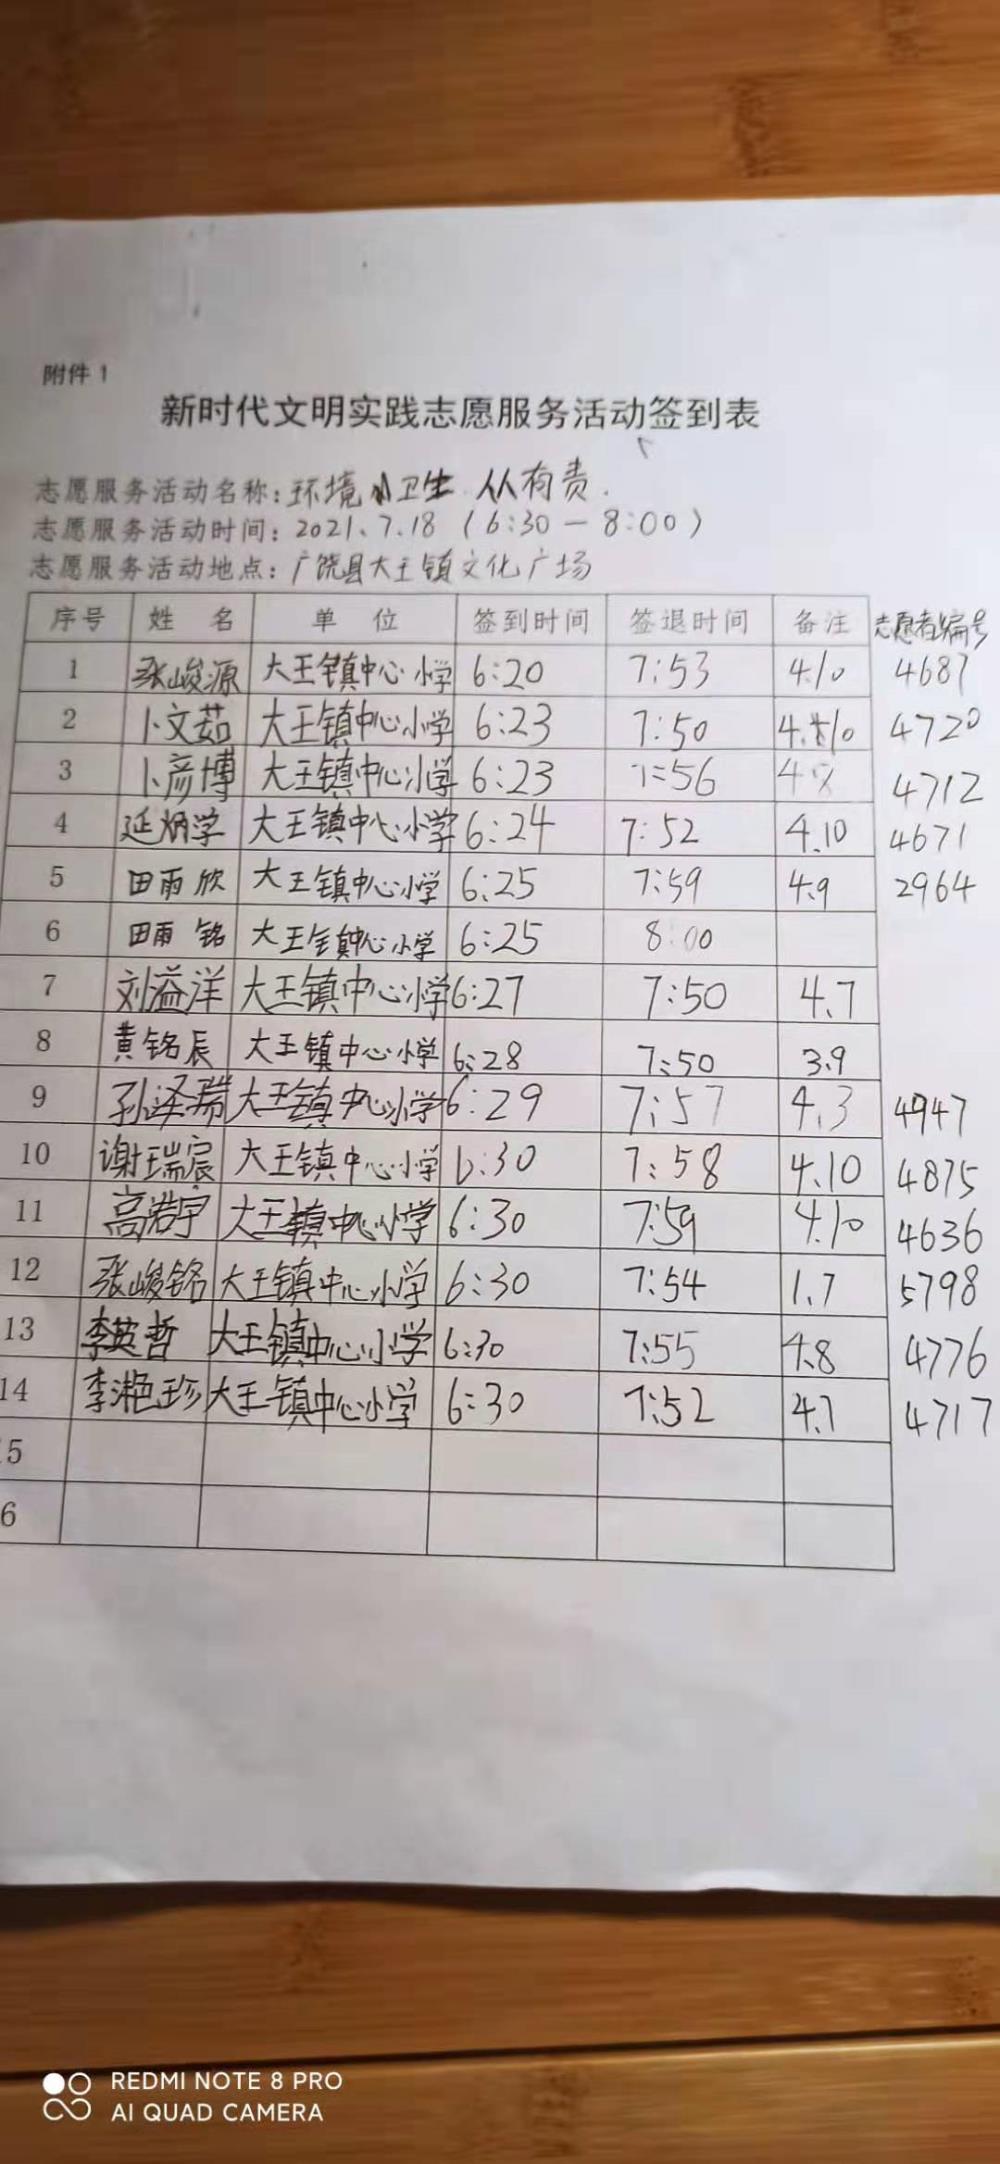 附件 1
新时代文明实践志愿服务活动签到表
志愿服务活动名称：环境卫生 人人有责.
志愿服务活动时间：2021.7.18（6:30－8:00）
志愿服务活动地点：广饶县大王镇文化广场
序号 姓 名 单 位 签到时间 签退时间 备注 志愿者编号
1 张峻源 大王镇中心小学 6:20 7:53 4.10 4687
2 卜文茹 大王镇中心小学 6:23 7:50 4.10 4720
3 卜彦博 大王镇中心小学 6:23 7:56 4712
4 延炳学 大王镇中心小学 6:24 7:52 4.10 4671
5 田雨欣 大王镇中心小学 6:25 7:59 4.9 2964
6 田雨铭 大王镇中心小学 6:25 8:00
7 刘溢洋 大王镇中心小学 6:27 7:50 4.7
8 黄铭辰 大王镇中心小学 6:28 7:50 3.9
9 孙泽瑞 大王镇中心小学 6:29 7:57 4.3 4947
10 谢瑞宸 大王镇中心小学 6:30 7:58 4.10 4875
11 高浩宇 大王镇中心小学 6:30 7:59 4.10 4636
12 张峻铭 大王镇中心小学 6:30 7:54 1.7 5798
13 李英哲 大王镇中心小学 6:30 7:55 4.8 4776
14 李滟珍 大王镇中心小学 6:30 7:52 4.7 4717
5
6
REDMI NOTE 8 PRO
AI QUAD CAMERA